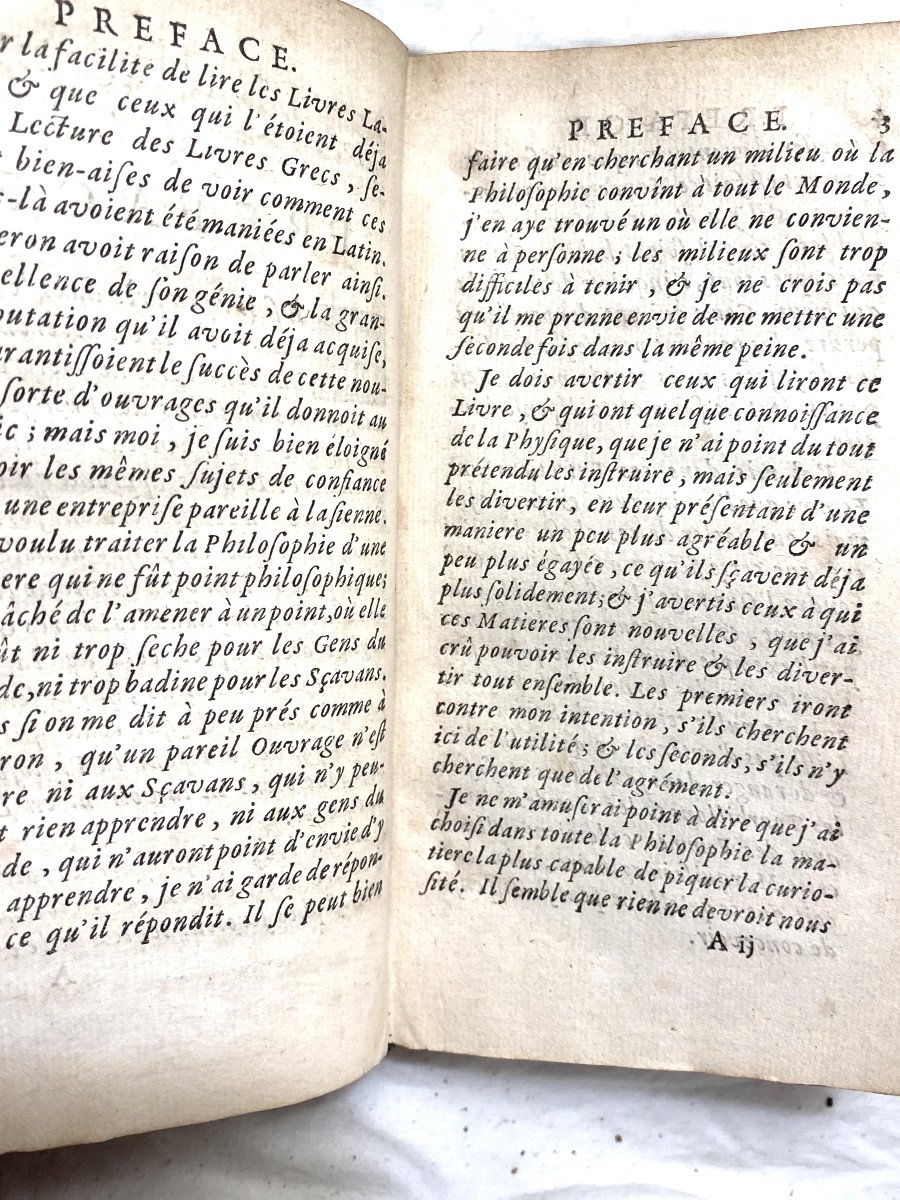 PREFACE.
r la facilite de lire les Livres La-
& que ceux qui l'étoient déja
Lecture des Livres Grecs, ſe-
bien-aiſes de voir comment ces
s-là avoient été maniées en Latin.
eron avoit raiſon de parler ainſi.
ellence de ſon génie, & la gran-
putation qu'il avoit déja acquiſe,
arantiſſoient le ſuccès de cette nou-
ſorte d'ouvrages qu'il donnoit au
ic; mais moi, je ſuis bien éloigné
oir les mêmes ſujets de confiance
une entrepriſe pareille à la ſienne.
voulu traiter la Philoſophie d'une
ere qui ne fût point philoſophique;
âché de l'amener à un point, où elle
ût ni trop ſeche pour les Gens du
de, ni trop badine pour les Sçavans.
s ſi on me dit à peu prés comme à
ron, qu'un pareil Ouvrage n'eſt
re ni aux Sçavans, qui n'y peu-
t rien apprendre, ni aux gens du
de, qui n'auront point d'envie d'y
apprendre, je n'ai garde de répon-
ce qu'il répondit. Il ſe peut bien
PREFACE. 3
faire qu'en cherchant un milieu où la
Philoſophie convînt à tout le Monde,
j'en aye trouvé un où elle ne convien-
ne à perſonne; les milieux ſont trop
difficiles à tenir, & je ne crois pas
qu'il me prenne envie de me mettre une
ſeconde fois dans la même peine.
Je dois avertir ceux qui liront ce
Livre, & qui ont quelque connoiſſance
de la Phyſique, que je n'ai point du tout
prétendu les inſtruire, mais ſeulement
les divertir, en leur préſentant d'une
maniere un peu plus agréable & un
peu plus égayée, ce qu'ils ſçavent déja
plus ſolidement; & j'avertis ceux à qui
ces Matieres ſont nouvelles, que j'ai
crû pouvoir les inſtruire & les diver-
tir tout enſemble. Les premiers iront
contre mon intention, s'ils cherchent
ici de l'utilité; & les ſeconds, s'ils n'y
cherchent que de l'agrément.
Je ne m'amuſerai point à dire que j'ai
choiſi dans toute la Philoſophie la ma-
tiere la plus capable de piquer la curio-
ſité. Il ſemble que rien ne devroit nous
A ij